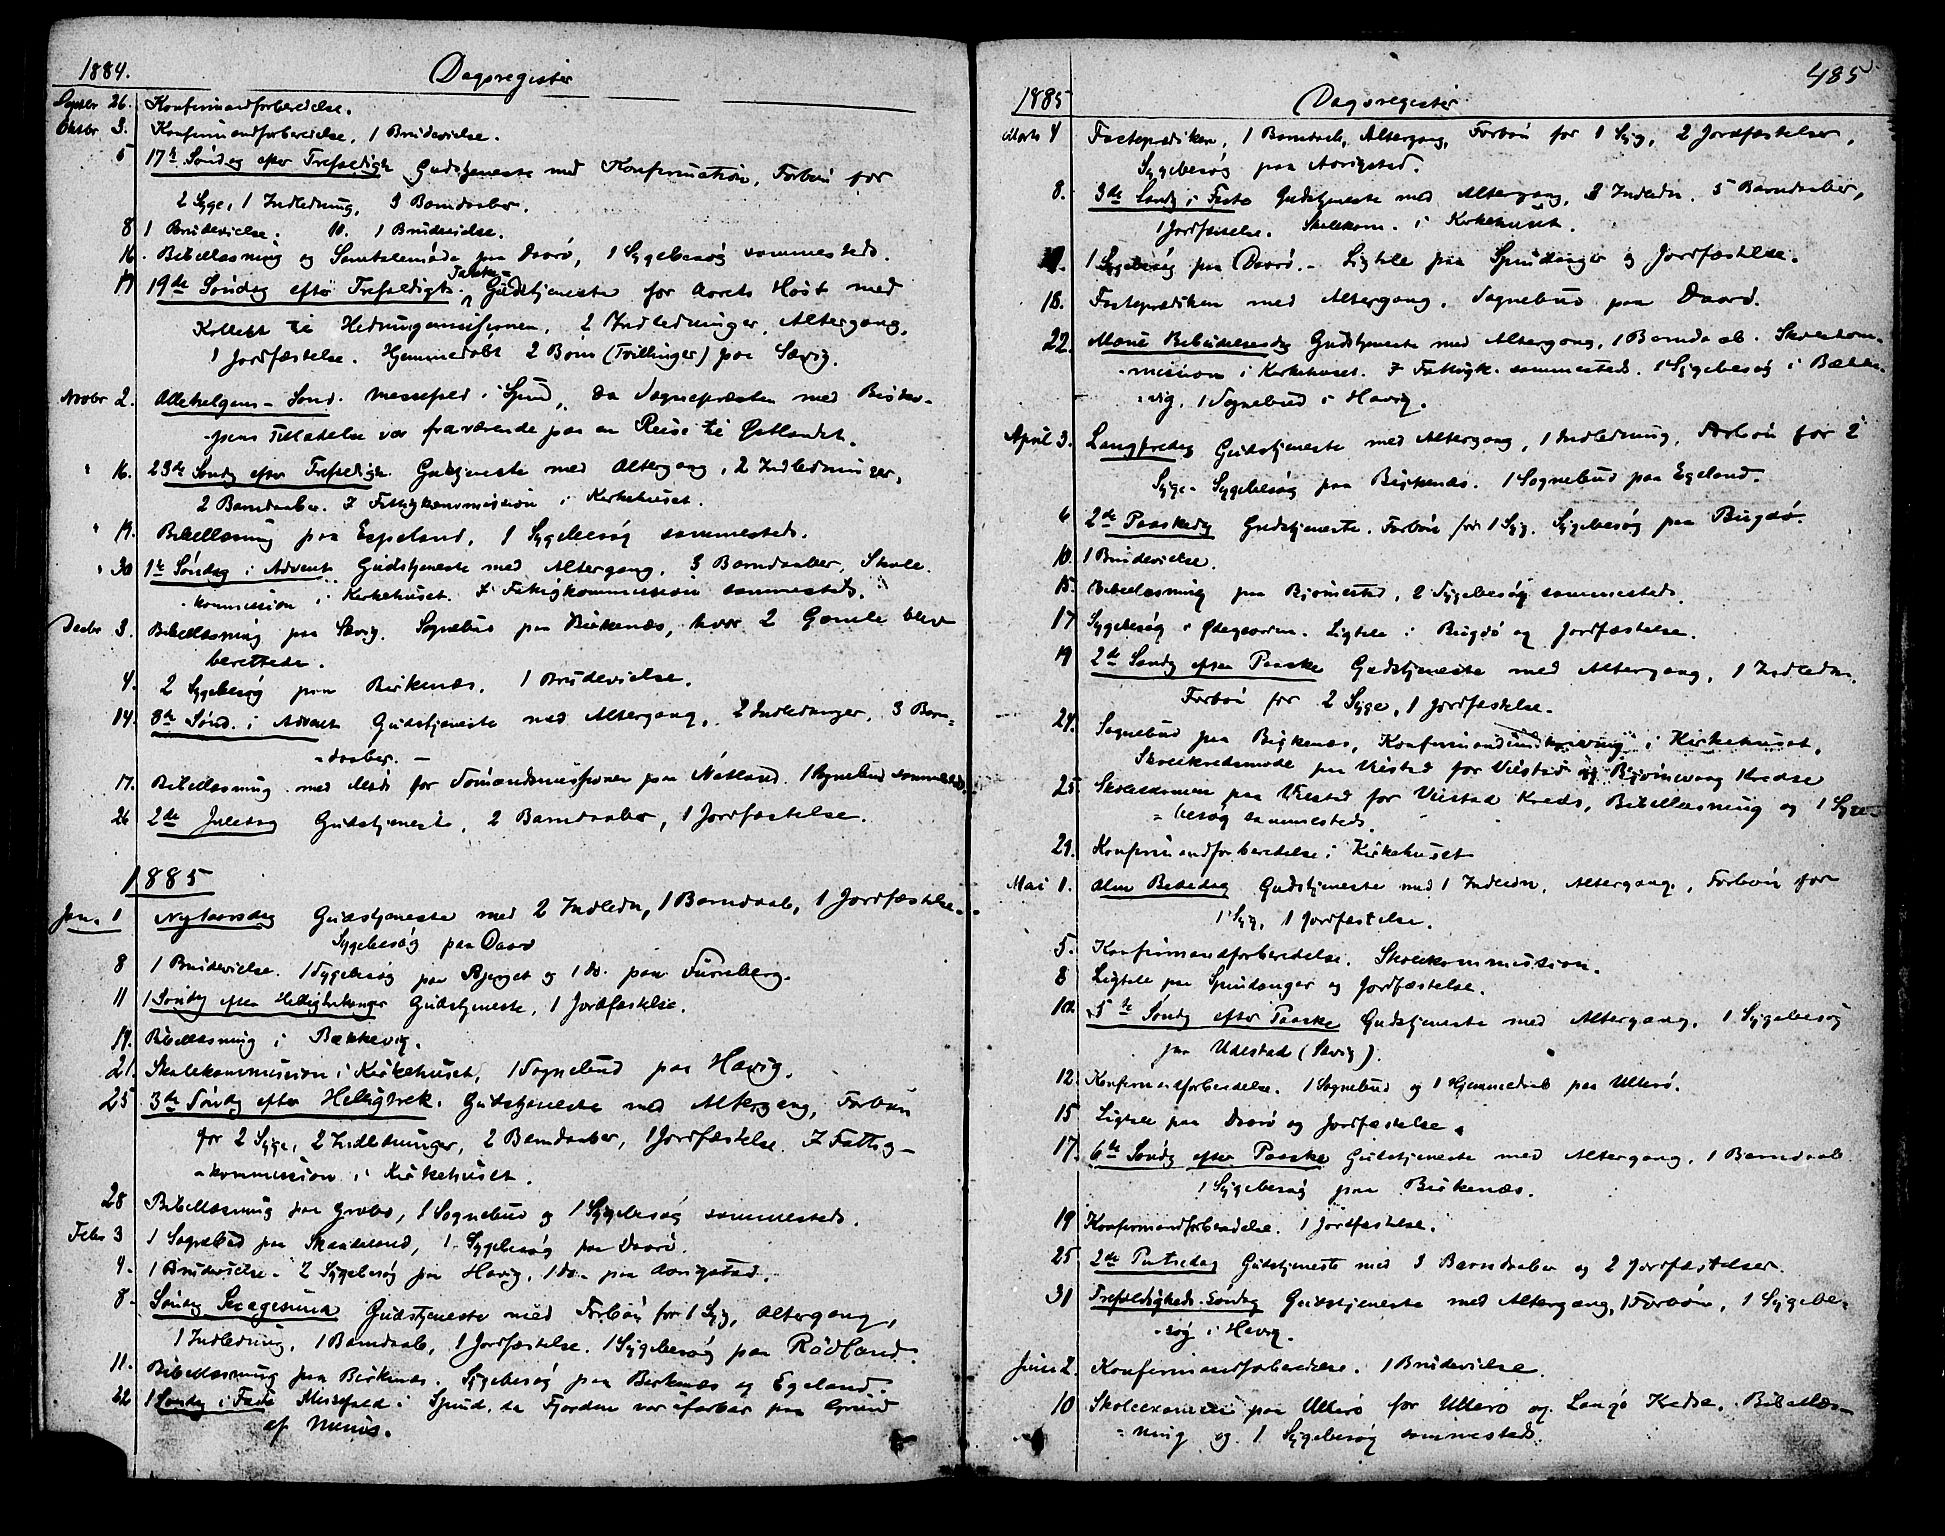 1884.
Dagsregister
Septbr 26. Konfirmandforberedelse.
Oktbr 3. Konfirmandforberedelse, 1 Brudevielse.
5 17de Søndag efter Trefoldigh. Gudstjeneste med Konfirmation, Forbøn for
2 Syge, 1 Indledning, 3 Barndaaber.
8 1 Brudevielse. 10. 1 Brudevielse.
16. Bibellæsning og Samtalemøde paa Daarø, 1 Sygebesøg sammesteds.
19 19de Søndag efter Trefoldigh. Takke-Gudstjeneste for Aarets Høst med
Kollekt til Hedningemissionen. 2 Indledninger, Altergang,
1 Jordfæstelse. Hjemmedøbt 2 Børn (Tvillinger) paa Sævig.
Novbr 2. Allehelgens-Sønd. Messefald i Spind, da Sognepræsten med Bisko-
-pens Tilladelse var fraværende paa en Reise til Østlandet.
" 16. 23de Søndg efter Trefoldigh. Gudstjeneste med Altergang, 2 Indledninger,
2 Barndaaber. 7 Fattigkommission i Kirkehuset.
" 19. Bibellæsning paa Espeland, 1 Sygebesøg sammesteds.
" 30 1ste Søndag i Advent Gudstjeneste med Altergang. 3 Barndaaber, Skole-
-kommission i Kirkehuset. 7 Fattigkommission sammesteds.
Decbr 3. Bibellæsning paa Sævig. Sognebud paa Birkenæs, hvor 2 Gamle blev
berettede.
4. 2 Sygebesøg paa Birkenæs. 1 Brudevielse.
14. 3de Sønd. i Advent Gudstjeneste med Altergang, 2 Indledninger, 3 Barn-
-daaber.
17. Bibellæsning med Møde for Sømandsmissionen paa Nåtland. 1 Sognebud sammesteds.
26 2de Juledag Gudstjeneste, 2 Barndaaber, 1 Jordfæstelse.
1885
Jan. 1 Nytaarsdag Gudstjeneste med 2 Indledn, 1 Barndaab, 1 Jordfæstelse.
Sygebesøg paa Daarø
8 1 Brudevielse. 1 Sygebesøg paa Bjerget og 1 do. paa Fureberg.
11 1 Søndg efter Helligtrekonger Gudstjeneste, 1 Jordfæstelse.
19. Bibellæsning i Bækkevig.
21. Skolekommission i Kirkehuset, 1 Sognebud paa Havig.
25 3de Søndg efter Helligtrek. Gudstjeneste med Altergang, Forbøn
for 2 Syge, 2 Indledninger, 2 Barndaaber, 1 Jordfæstelse. 7 Fattig-
-kommission i Kirkehuset.
28 Bibellæsning paa , 1 Sognebud og 1 Sygebesøg sammesteds.
Febr 3 1 Sognebud paa Skandeland, 1 Sygebesøg paa Daarø.
4. 1 Brudevielse. 2 Sygebesøg paa Havig, 1 do. paa Aarigstad.
8. Søndg Sexagesima Gudstjeneste med Forbøn for 1 Syg, Altergang,
1 Indledning, 1 Barndaab, 1 Jordfæstelse. 1 Sygebesøg paa Rødland.
11. Bibellæsning paa Birkenæs. Sygebesøg paa Birkenæs og Egeland.
22 1 Søndg i Faste Messefald i Spind, da Fjorden var ufarbar paa Grund
af Menis.
485
1885
Dagsregister
Marts 4 Fasteprædiken, 1 Barndaab, Altergang, Forbøn for 1 Syg, 2 Jordfæstelser,
Sygebesøg paa Aarigstad.
8. 3de Søndg i Faste Gudstjeneste med Altergang, 3 Indledn. 5 Barndaaber,
1 Jordfæstelse. Skolekom. i Kirkehuset.
1 Sygebesøg paa Daarø. Ligtale paa Spindanger og Jordfæstelse.
18. Fasteprædiken med Altergang. Sognebud paa Daarø.
22. Mariæ Bebudelsesdg Gudstjeneste med Altergang, 1 Barndaab. Skolekom-
-mission i Kirkehuset. 7 Fattigk. sammesteds. 1 Sygebesøg i Bække-
-vig, 1 Sognebud i Havig.
April 3. Langfredag Gudstjeneste med Altergang, 1 Indledning, Forbøn for 2
Syge. Sygebesøg paa Birkenæs. 1 Sognebud paa Egeland.
6 2de Paaskedg Gudstjeneste. Forbøn for 1 Syg. Sygebesøg paa Bugdø.
10. 1 Brudevielse.
15. Bibellæsning paa Bjørnestad, 2 Sygebesøg sammesteds.
17 Sygebesøg i Ødegaarden. Ligtale i Bugdø og Jordfæstelse.
19 2de Søndg efter Paaske Gudstjeneste med Altergang, 1 Indledn.
Forbøn for 2 Syge, 1 Jordfæstelse.
24. Sognebud paa Birkenæs, Konfirmandindskrivning i Kirkehuset.
Skolekredsmøde paa Vilestad for Vilestad og Bjørnevaag Kredse
25 Skoleexamen paa Vilestad for Vilestad Kreds, Bibellæsning og 1 Syge-
-besøg sammesteds.
29. Konfirmandforberedelse i Kirkehuset
Mai 1. Alm Bededag Gudstjeneste med 1 Indledn, Altergang, Forbøn for
1 Syg, 1 Jordfæstelse.
5. Konfirmandforberedelse. Skolekommission.
8 Ligtale paa Spindanger og Jordfæstelse.
10. 5te Søndg efter Paaske Gudstjeneste med Altergang, 1 Sygebesøg
paa Udestad (Sævig).
12. Konfirmandforberedelse. 1 Sognebud og 1 Hjemmedaab paa Ullerø.
15 Ligtale paa Daarø og Jordfæstelse.
17. 6te Søndg efter Paaske Gudstjeneste med Altergang, 1 Barndaab
1 Sygebesøg paa Birkenæs.
19 Konfirmandforberedelse. 1 Jordfæstelse.
25 2de Pintsedag Gudstjeneste med 3 Barndaaber og 2 Jordfæstelser.
31 Trefoldigheds-Søndag Gudstjeneste med Altergang, 1 Forbøn, 1 Sygebe-
-søg i Havig.
Juni 2. Konfirmandforberedelse. 1 Brudevielse.
10 Skoleexamen paa Ullerø for Ullerø og Langø Kredse. Bibellæs-
-ning og 1 Sygebesøg sammesteds.